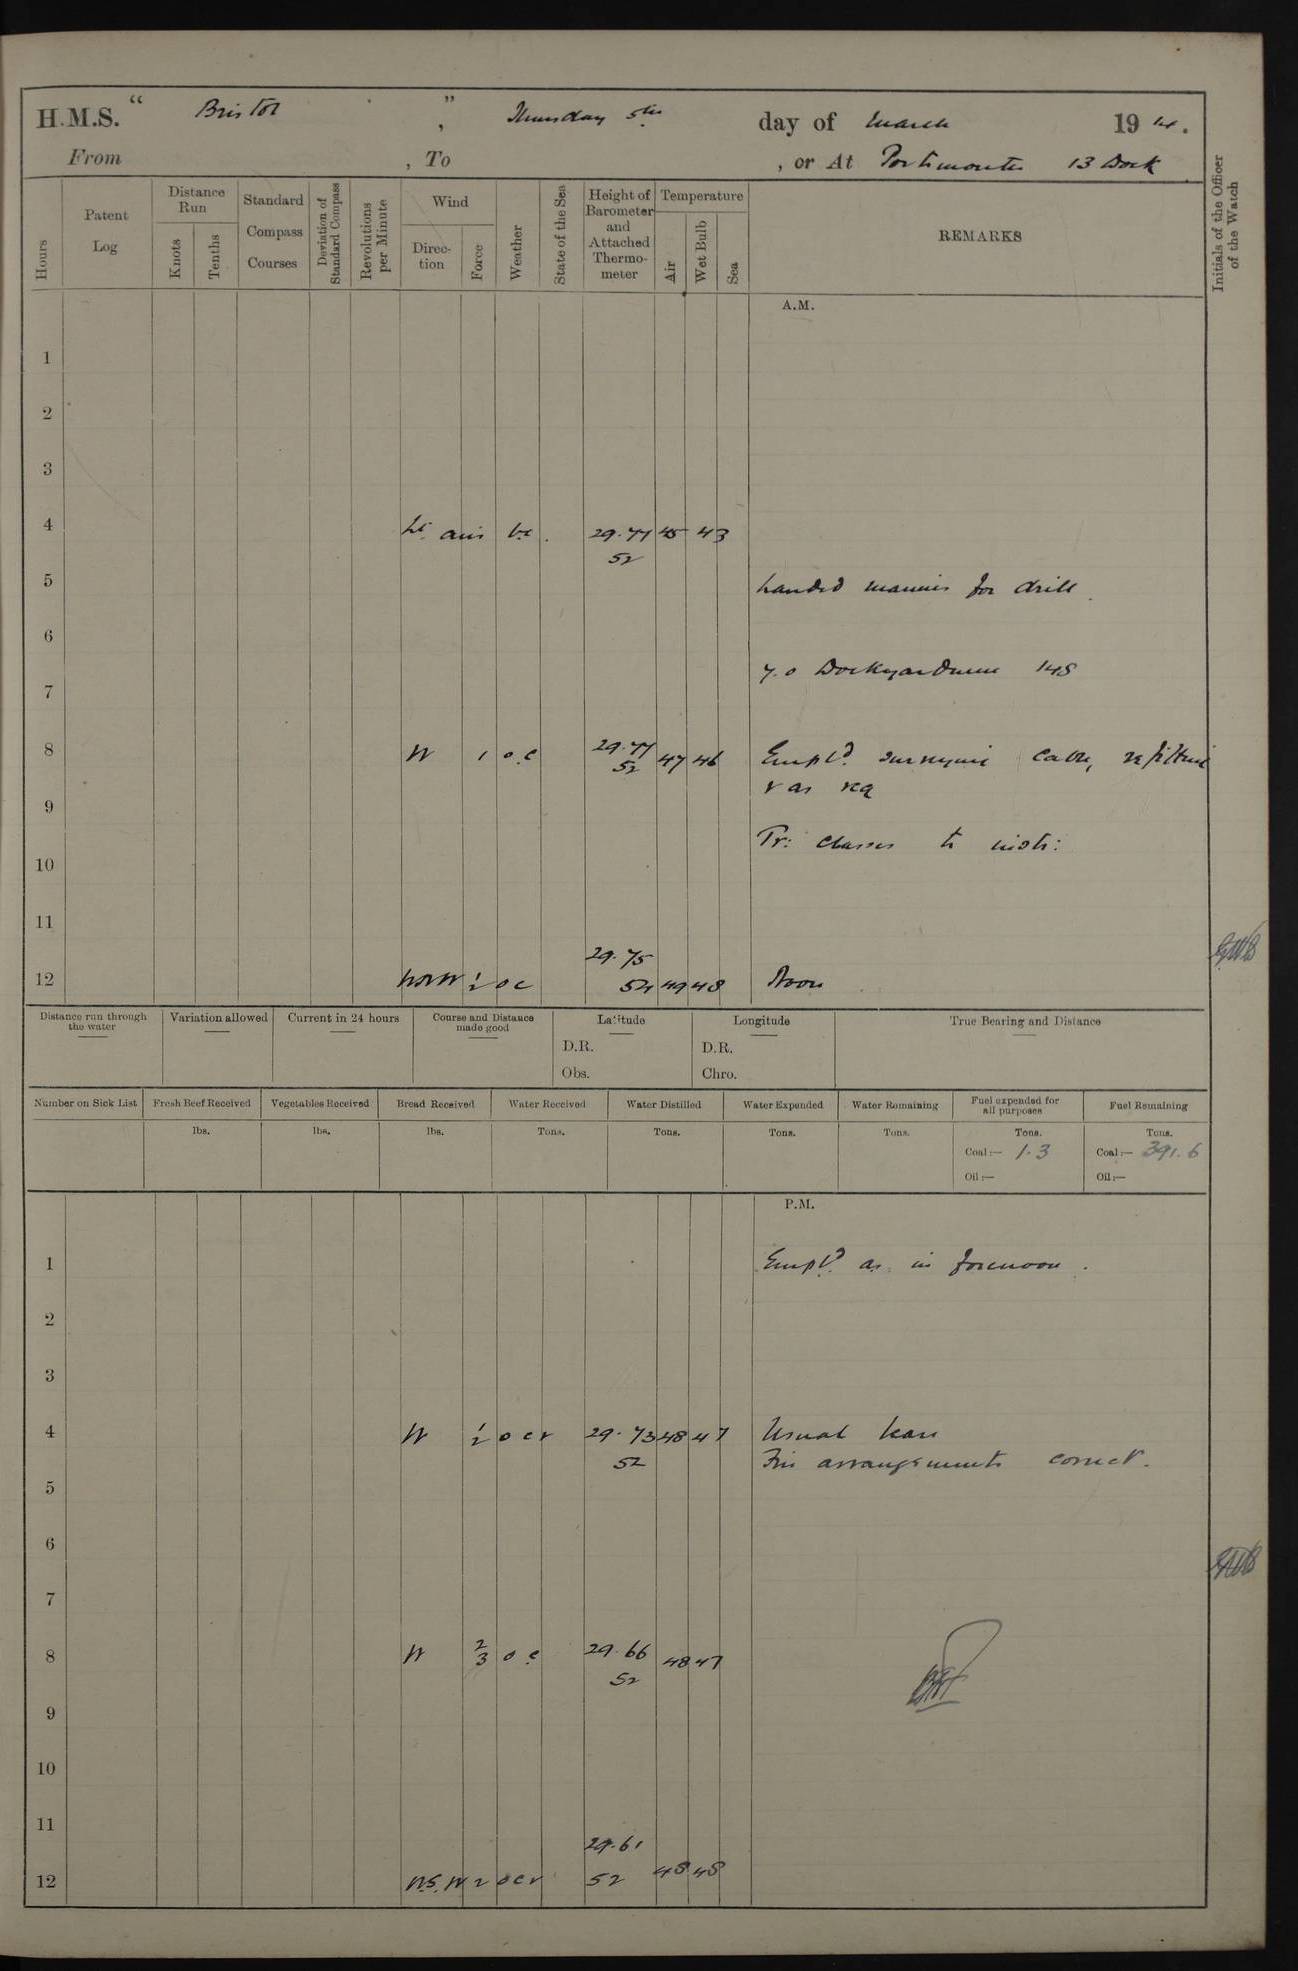 H.M.S. “ Bristol ” , Thursday 5th day of March 19 14.
From , To , or At Portsmouth 13 Dock
Hours
Patent Log
Distance Run
Knots
Tenths
Standard Compass Courses
Deviation of Standard Compass
Revolutions per Minute
Wind
Direction
Force
Weather
State of the Sea
Height of Barometer and Attached Thermometer
Temperature
Air
Wet Bulb
Sea
REMARKS
Initials of the Officer of the Watch
A.M.
1
2
3
4 Lt airs bc. 29.77 45 43
52
5 Landed marines for drill.
6
7.0 Dockyardmen 148
7
8 W 1 o.c 29.77 47 46 Empld. surveying cable, refitting
52
& as req
9
Tr: classes to instr:
10
11
29.75
12 WNW 1 2 o c 54 49 48 Noon
Distance run through the water
Variation allowed
Current in 24 hours
Course and Distance made good
Latitude
D.R.
Obs.
Longitude
D.R.
Chro.
True Bearing and Distance
Number on Sick List
Fresh Beef Received
Vegetables Received
Bread Received
Water Received
Water Distilled
Water Expended
Water Remaining
Fuel expended for all purposes
Fuel Remaining
lbs. lbs. lbs. Tons. Tons. Tons. Tons. Tons. Tons.
Coal:— 1.3 Coal:— 391.6
Oil:— Oil:—
P.M.
1 Empld. as in forenoon.
2
3
4 W 1 2 o c r 29.73 48 47 Usual leave
52 Fire arrangements correct.
5
6
7
8 W 2 3 o c 29.66 48 47
52
9
10
11
29.61
12 W.S.W 2 o c r 52 48 48